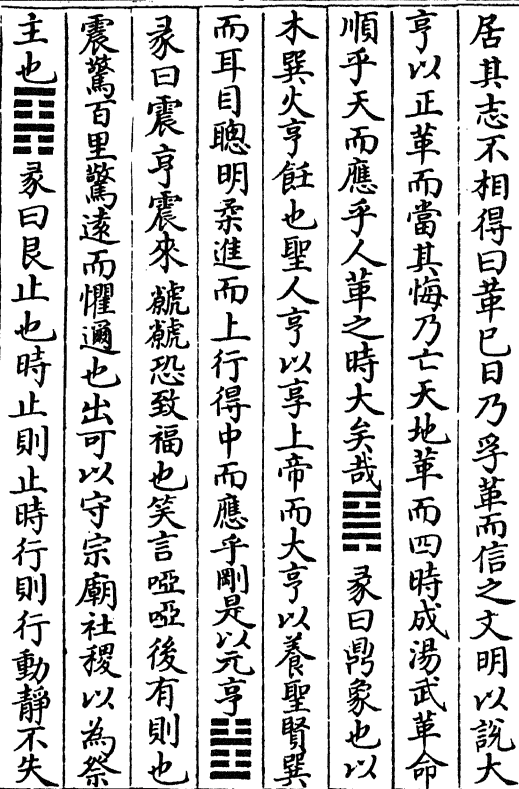 居其志不相得曰革巳日乃孚革而信之文明以説大
亨以正革而當其悔乃亡天地革而四時成湯武革命
順乎天而應乎人革之時大矣哉䷱彖曰鼎象也以
木巽火亨飪也聖人亨以享上帝而大亨以養聖賢巽
而耳目聰明柔進而上行得中而應乎剛是以元亨䷲
彖曰震亨震來虩虩恐致福也笑言啞啞後有則也
震驚百里驚遠而懼邇也出可以守宗廟社稷以為祭
主也䷳彖曰艮止也時止則止時行則行動靜不失